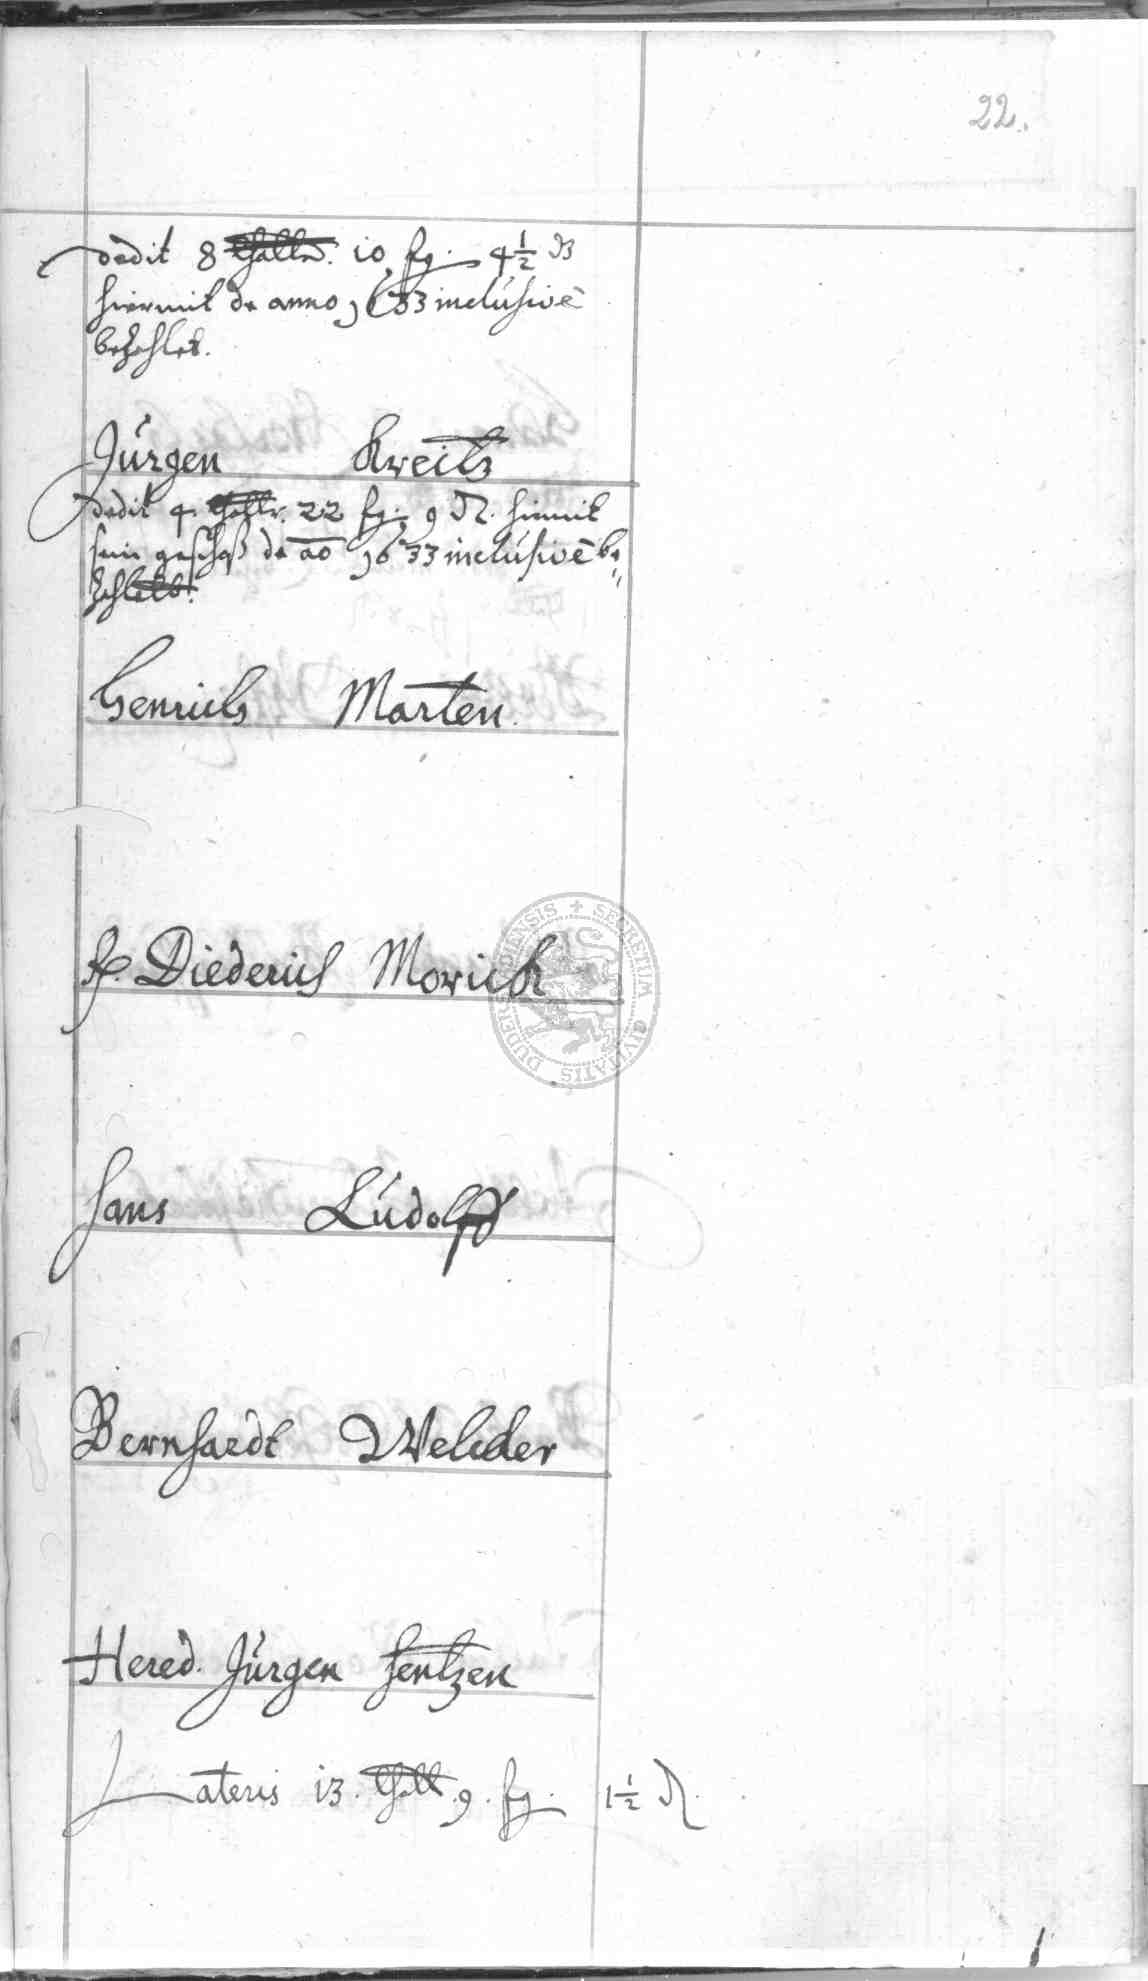 22.
dedit 8 thaler. 10 fg. 4½ ₰
hiermit de anno 1633 inclusivè
bezahlet.
Jürgen Kreitz
dedit 4. thaler. 22 fg. 9 ₰. hiemit
sein geschoß de ao 1633 inclusivè be„
zahlett.
Henrich Marten.
H. Diederich Morick
Hans Ludolff
Bernhardt Welcker
Hered. Jürgen Hentzen
Lateris 13. thall 9. fg. 1½ ₰.
SECRETUM CIVITATIS DUDERSTADIENSIS